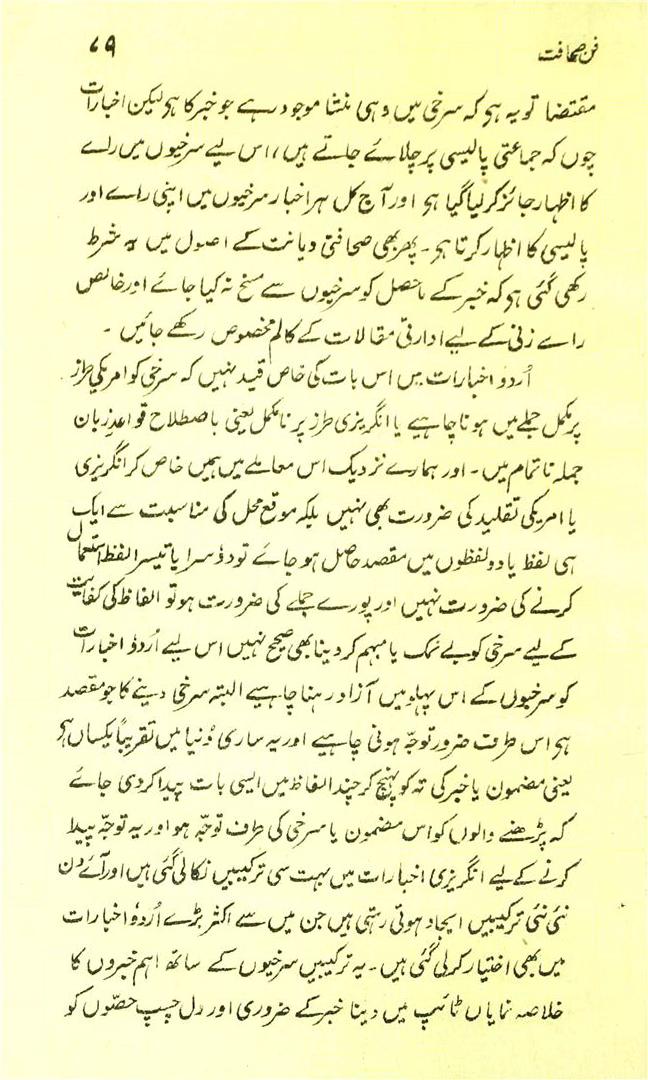 فن صحافت ۷۹
مقتضا تو یہ ہی کہ سرخی میں وہی منشا موجود رہے جو خبر کا ہی لیکن اخبارات
چوں کہ جماعتی پالیسی پر چلائے جاتے ہیں، اس لیے سرخیوں میں راے
کا اظہار جائز کر لیا گیا ہی اور آج کل ہر اخبار سرخیوں میں اپنی راے اور
پالیسی کا اظہار کرتا ہی۔ پھر بھی صحافتی دیانت کے اصول میں یہ شرط
رکھی گئی ہی کہ خبر کے ماحصل کو سرخیوں سے مسخ نہ کیا جائے اور خالص
راے زنی کے لیے ادارتی مقالات کے کالم مخصوص رکھے جائیں ۔
اُردو اخبارات میں اس بات کی خاص قید نہیں کہ سرخی کو امریکی طرز
پر مکمل جملے میں ہونا چاہیے یا انگریزی طرز پر نامکمل یعنی باصطلاح قواعدِ زبان
جملہ ناتمام میں۔ اور ہمارے نزدیک اس معاملے میں ہمیں خاص کر انگریزی
یا امریکی تقلید کی ضرورت بھی نہیں بلکہ موقع محل کی مناسبت سے ایک
ہی لفظ یا دو لفظوں میں مقصد حاصل ہو جائے تو دوسرا یا تیسرا لفظ استعمال
کرنے کی ضرورت نہیں اور پورے جملے کی ضرورت ہو تو الفاظ کی کفایت
کے لیے سرخی کو بے نمک یا مبہم کر دینا بھی صحیح نہیں اس لیے اُردو اخبارات
کو سرخیوں کے اس پہلو میں آزاد رہنا چاہیے البتہ سرخی دینے کا جو مقصد
ہی اس طرف ضرور توجّہ ہونی چاہیے اور یہ ساری دُنیا میں تقریباً یکساں ہی
یعنی مضمون یا خبر کی تہ کو پہنچ کر چند الفاظ میں ایسی بات پیدا کر دی جائے
کہ پڑھنے والوں کو اس مضمون یا سرخی کی طرف توجّہ ہو اور یہ توجّہ پیدا
کرنے کے لیے انگریزی اخبارات میں بہت سی ترکیبیں نکالی گئی ہیں اور آئے دن
نئی نئی ترکیبیں ایجاد ہوتی رہتی ہیں جن میں سے اکثر بڑے اُردو اخبارات
میں بھی اختیار کر لی گئی ہیں۔ یہ ترکیبیں سرخیوں کے ساتھ اہم خبروں کا
خلاصہ نمایاں ٹائپ میں دینا خبر کے ضروری اور دل چسپ حصّوں کو